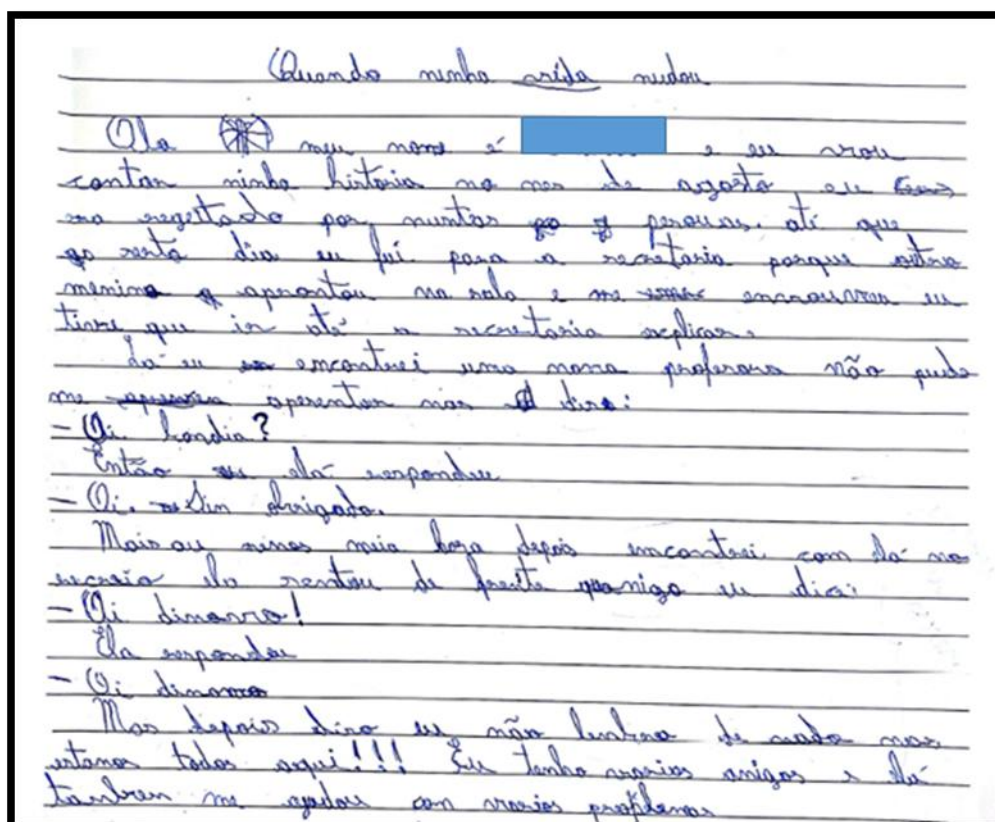 Quando ninha vida nudou
Ola meu nome é e eu vou
contar ninha história no nes de agosto eu
era regeitado por nuntas pesouas. até que
serto dia eu fui para a secretaria porque outro
menino aprontou na sala e me eu
tive que ir até a secretaria explicar.
Lá eu encontrei uma nova profesora não pude
me apesentar mas diso:
- Oi. bondia?
Então ela respondeu
- Oi. Sin obrigado.
Mais ou ninos meia hora depois encontrei com la no
recreio ela sentou de frente quonigo eu dise:
- Oi dinovo!
Ela respondeu
- Oi dinovo
Mas depois diso eu não lenbro de nada mas
estanos todos aqui!!! Eu tenho varios anigos e ela
tanben me agudou con varios problenas